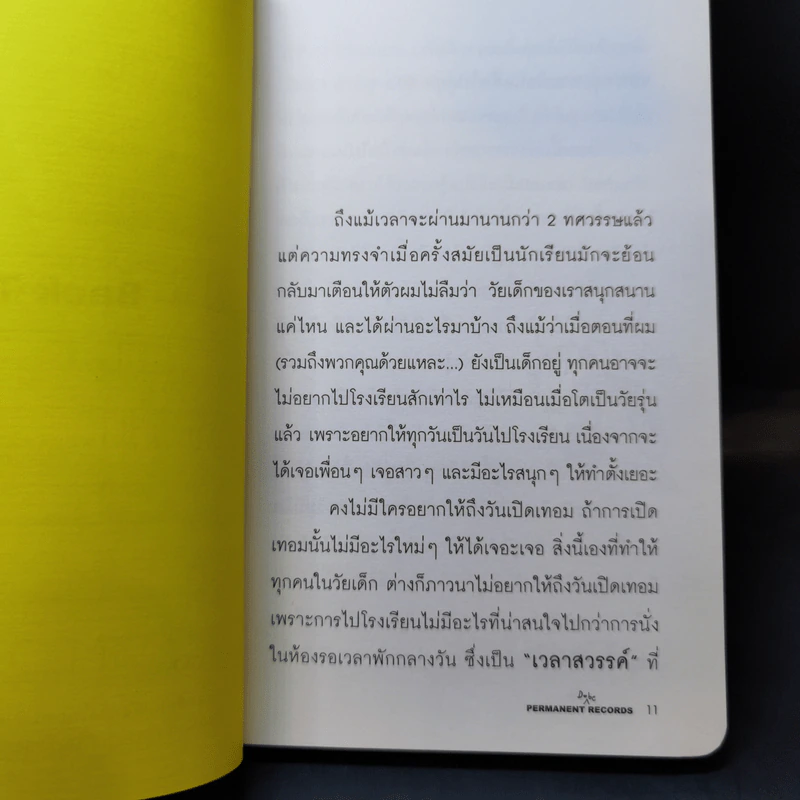 ถึงแม้เวลาจะผ่านมานานกว่า 2 ทศวรรษแล้ว
แต่ความทรงจำเมื่อครั้งสมัยเป็นนักเรียนมักจะย้อน
กลับมาเตือนให้ตัวผมไม่ลืมว่า วัยเด็กของเราสนุกสนาน
แค่ไหน และได้ผ่านอะไรมาบ้าง ถึงแม้ว่าเมื่อตอนที่ผม
(รวมถึงพวกคุณด้วยแหละ...) ยังเป็นเด็กอยู่ ทุกคนอาจจะ
ไม่อยากไปโรงเรียนสักเท่าไร ไม่เหมือนเมื่อโตเป็นวัยรุ่น
แล้ว เพราะอยากให้ทุกวันเป็นวันไปโรงเรียน เนื่องจากจะ
ได้เจอเพื่อนๆ เจอสาวๆ และมีอะไรสนุกๆ ให้ทำตั้งเยอะ
คงไม่มีใครอยากให้ถึงวันเปิดเทอม ถ้าการเปิด
เทอมนั้นไม่มีอะไรใหม่ๆ ให้ได้เจอะเจอ สิ่งนี้เองที่ทำให้
ทุกคนในวัยเด็ก ต่างก็ภาวนาไม่อยากให้ถึงวันเปิดเทอม
เพราะการไปโรงเรียนไม่มีอะไรที่น่าสนใจไปกว่าการนั่ง
ในห้องรอเวลาพักกลางวัน ซึ่งเป็น "เวลาสวรรค์" ที่
PERMANENT RECORDS 11